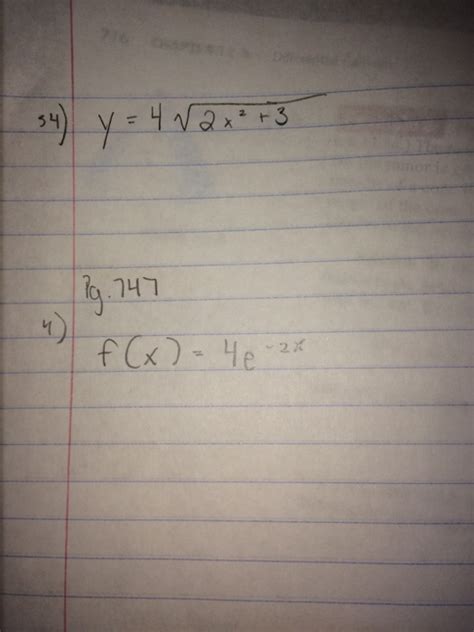 34) y = 4 √(2x² + 3)
Pg. 747
4) f(x) = 4e⁻²ˣ